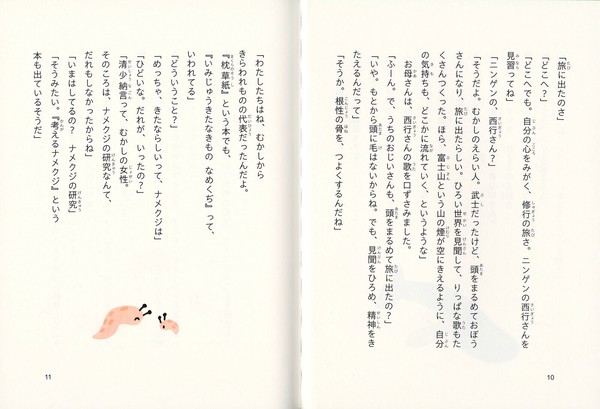 「旅に出たのさ」
「どこへ？」
「どこへでも。自分の心をみがく、修行の旅さ。ニンゲンの西行さんを
見習ってね」
「ニンゲンの、西行さん？」
「そうだよ。むかしのえらい人。武士だったけど、頭をまるめておぼう
さんになり、旅に出たらしい。ひろい世界を見聞して、りっぱな歌もた
くさんつくった。ほら、富士山という山の煙が空にきえるように、自分
の気持ちも、どこかに流れていく、というような」
お母さんは、西行さんの歌を口ずさみました。
「ふーん。で、うちのおじいさんも、頭をまるめて旅に出たの？」
「いや。もとから頭に毛はないからね。でも、見聞をひろめ、精神をき
たえるんだって」
「そうか。根性の骨を、つよくするんだね」
10
「わたしたちはね、むかしから
きらわれものの代表だったんだよ。
『枕草紙』という本でも、
『いみじゅうきたなきもの なめくぢ』って、
いわれてる」
「どういうこと？」
「めっちゃ、きたならしいって、ナメクジは」
「ひどいな。だれが、いったの？」
「清少納言って、むかしの女性。
そのころは、ナメクジの研究なんて、
だれもしなかったからね」
「いまはしてるの？ ナメクジの研究」
「そうみたい。『考えるナメクジ』という
本も出ているそうだ」
11